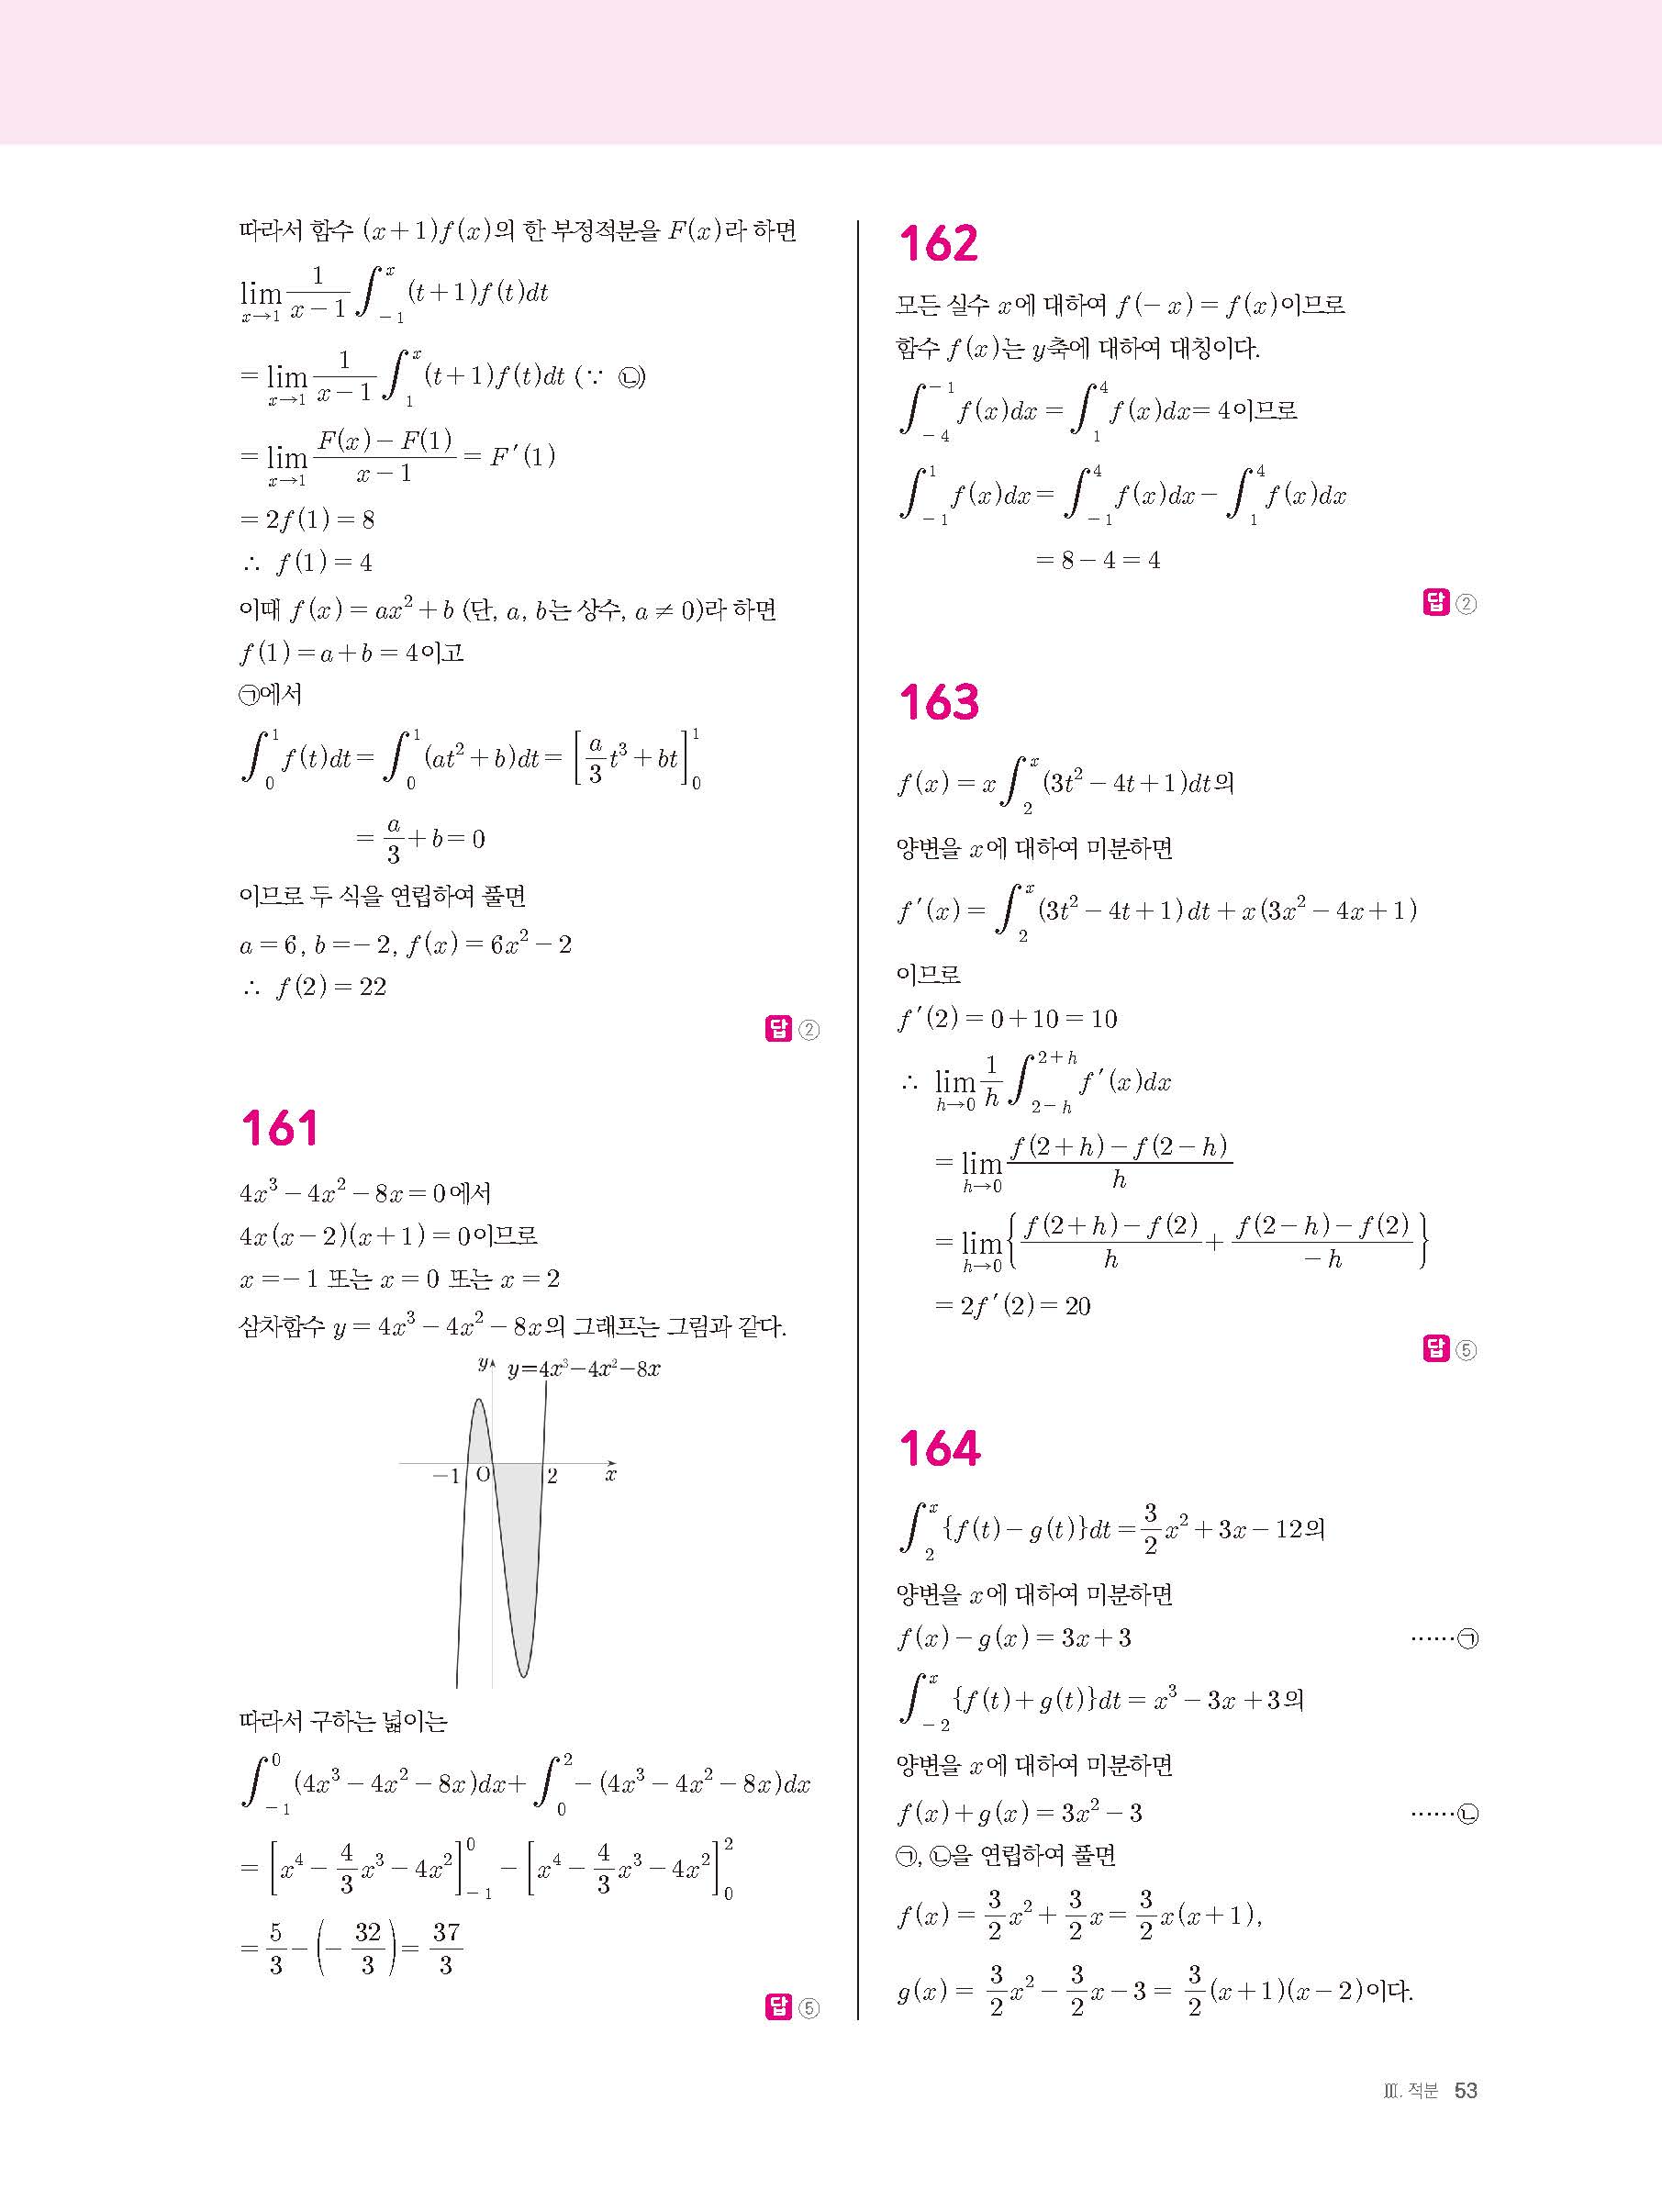 따라서 함수 (x+1)f(x)의 한 부정적분을 F(x)라 하면
lim_{x→1} \frac{1}{x-1} ∫_{-1}^{x} (t+1)f(t)dt
= lim_{x→1} \frac{1}{x-1} ∫_{1}^{x} (t+1)f(t)dt (∵ ㉡)
= lim_{x→1} \frac{F(x)-F(1)}{x-1} = F′(1)
= 2f(1) = 8
∴ f(1) = 4
이때 f(x) = ax² + b (단, a, b는 상수, a ≠ 0)라 하면
f(1) = a+b = 4이고
㉠에서
∫_{0}^{1} f(t)dt = ∫_{0}^{1} (at²+b)dt = [\frac{a}{3}t³+bt]_{0}^{1}
= \frac{a}{3}+b = 0
이므로 두 식을 연립하여 풀면
a = 6, b = -2, f(x) = 6x² - 2
∴ f(2) = 22
답 ②
161
4x³ - 4x² - 8x = 0에서
4x(x-2)(x+1) = 0이므로
x = -1 또는 x = 0 또는 x = 2
삼차함수 y = 4x³ - 4x² - 8x의 그래프는 그림과 같다.
y y=4x³-4x²-8x
-1 O 2 x
따라서 구하는 넓이는
∫_{-1}^{0} (4x³-4x²-8x)dx + ∫_{0}^{2} -(4x³-4x²-8x)dx
= [x⁴ - \frac{4}{3}x³ - 4x²]_{-1}^{0} - [x⁴ - \frac{4}{3}x³ - 4x²]_{0}^{2}
= \frac{5}{3} - (-\frac{32}{3}) = \frac{37}{3}
답 ⑤
162
모든 실수 x에 대하여 f(-x) = f(x)이므로
함수 f(x)는 y축에 대하여 대칭이다.
∫_{-4}^{-1} f(x)dx = ∫_{1}^{4} f(x)dx = 4이므로
∫_{-1}^{1} f(x)dx = ∫_{-1}^{4} f(x)dx - ∫_{1}^{4} f(x)dx
= 8-4 = 4
답 ②
163
f(x) = x∫_{2}^{x} (3t²-4t+1)dt의
양변을 x에 대하여 미분하면
f′(x) = ∫_{2}^{x} (3t²-4t+1)dt + x(3x²-4x+1)
이므로
f′(2) = 0+10 = 10
∴ lim_{h→0} \frac{1}{h} ∫_{2-h}^{2+h} f′(x)dx
= lim_{h→0} \frac{f(2+h)-f(2-h)}{h}
= lim_{h→0} {\frac{f(2+h)-f(2)}{h} + \frac{f(2-h)-f(2)}{-h}}
= 2f′(2) = 20
답 ⑤
164
∫_{2}^{x} {f(t)-g(t)}dt = \frac{3}{2}x²+3x-12의
양변을 x에 대하여 미분하면
f(x)-g(x) = 3x+3 ……㉠
∫_{-2}^{x} {f(t)+g(t)}dt = x³-3x+3의
양변을 x에 대하여 미분하면
f(x)+g(x) = 3x²-3 ……㉡
㉠, ㉡을 연립하여 풀면
f(x) = \frac{3}{2}x² + \frac{3}{2}x = \frac{3}{2}x(x+1),
g(x) = \frac{3}{2}x² - \frac{3}{2}x - 3 = \frac{3}{2}(x+1)(x-2)이다.
Ⅲ. 적분 53